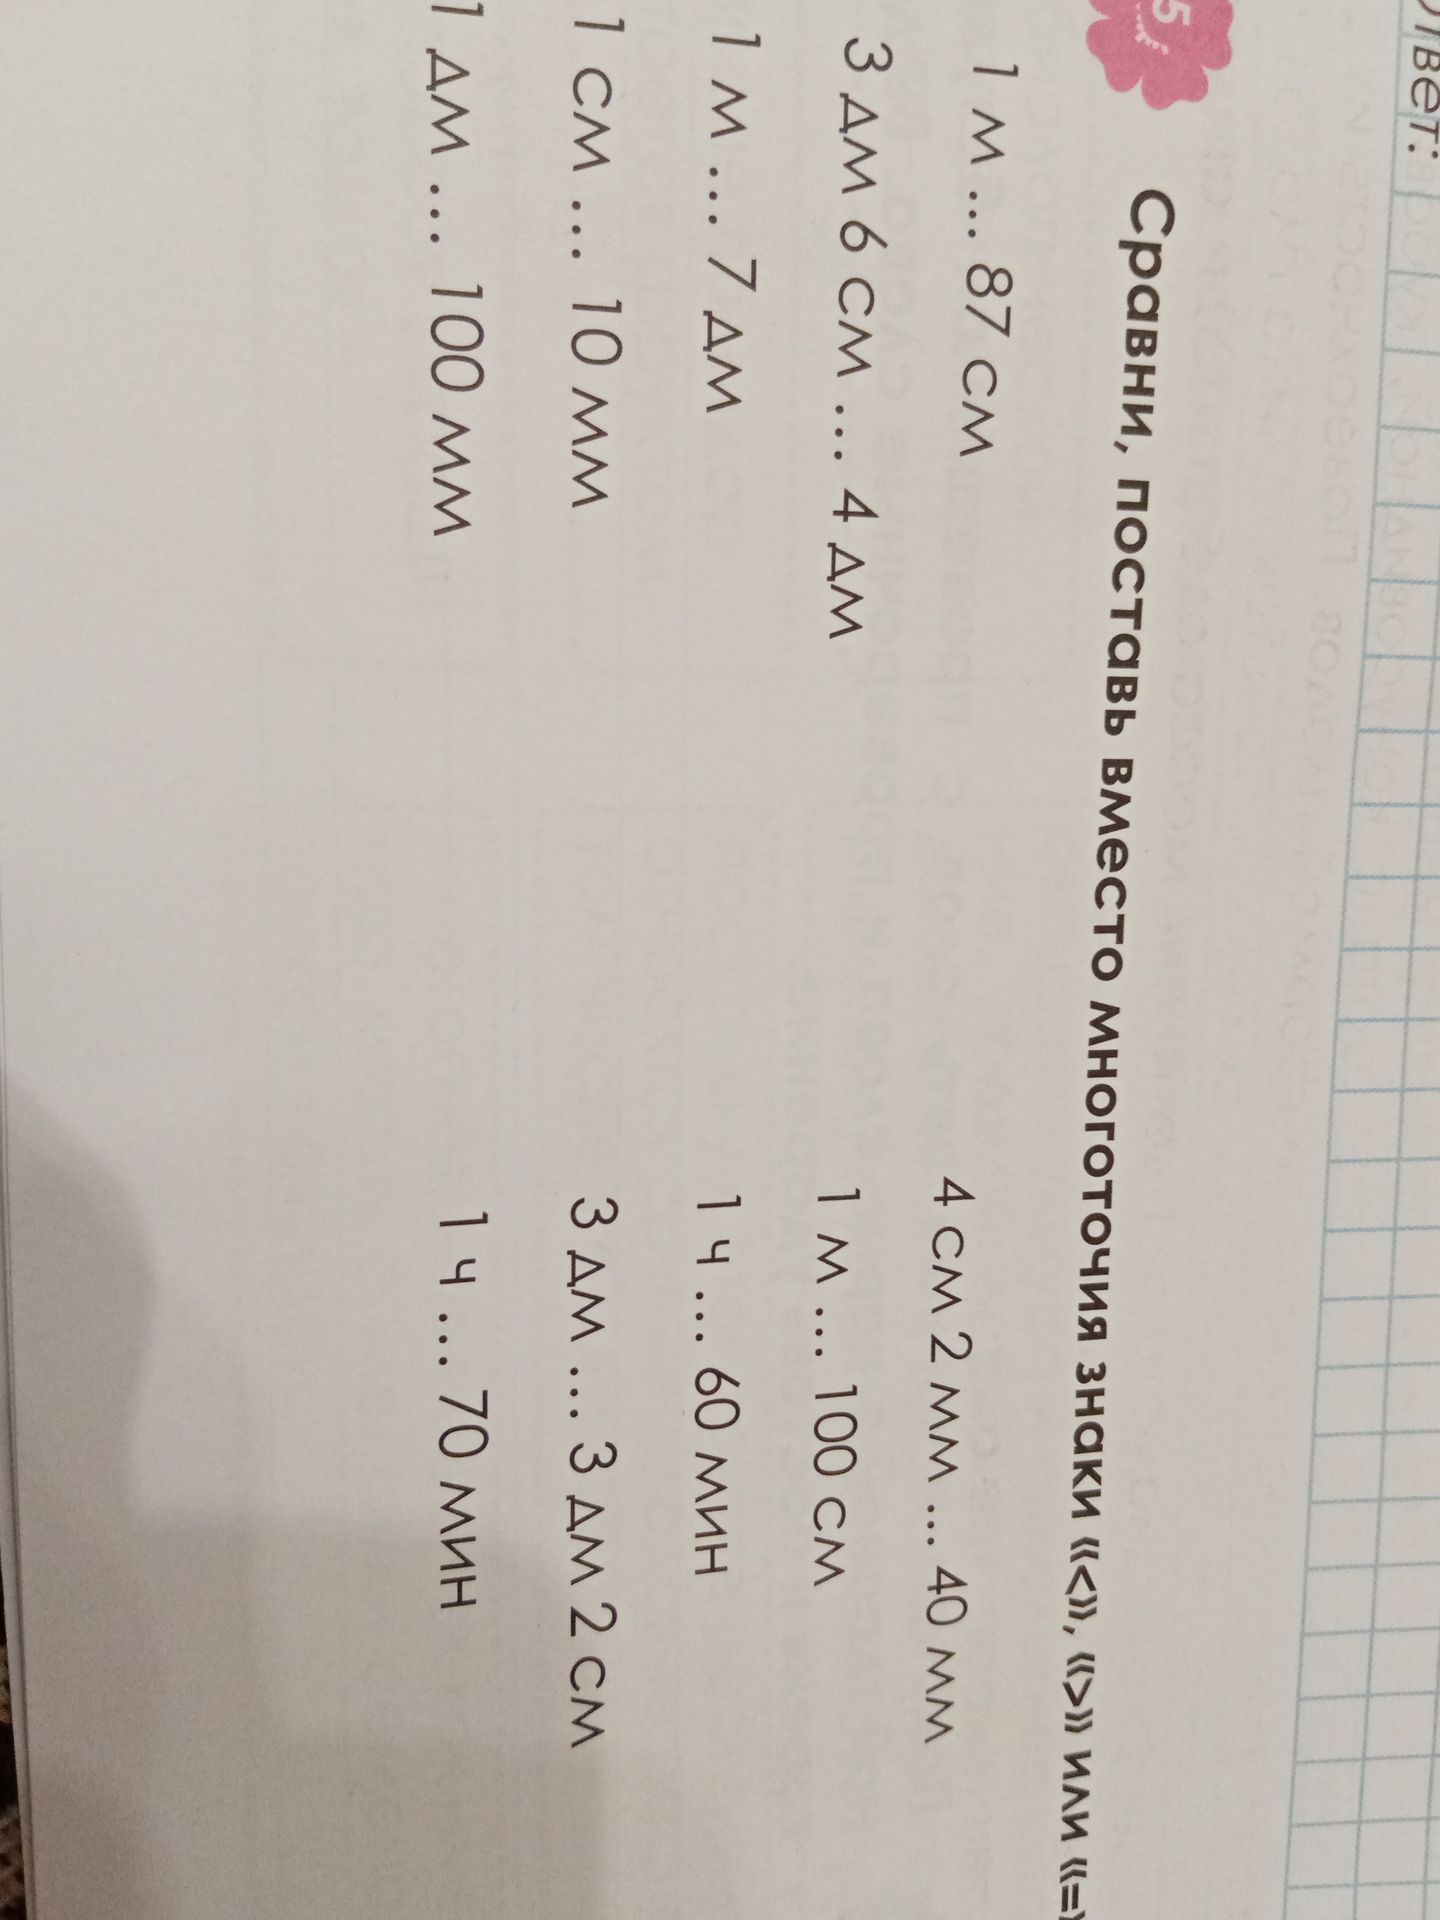 Ответ:
5
Сравни, поставь вместо многоточия знаки «<», «>» или «=»
1 м ... 87 см
3 дм 6 см ... 4 дм
1 м ... 7 дм
1 см ... 10 мм
1 дм ... 100 мм
4 см 2 мм ... 40 мм
1 м ... 100 см
1 ч ... 60 мин
3 дм ... 3 дм 2 см
1 ч ... 70 мин